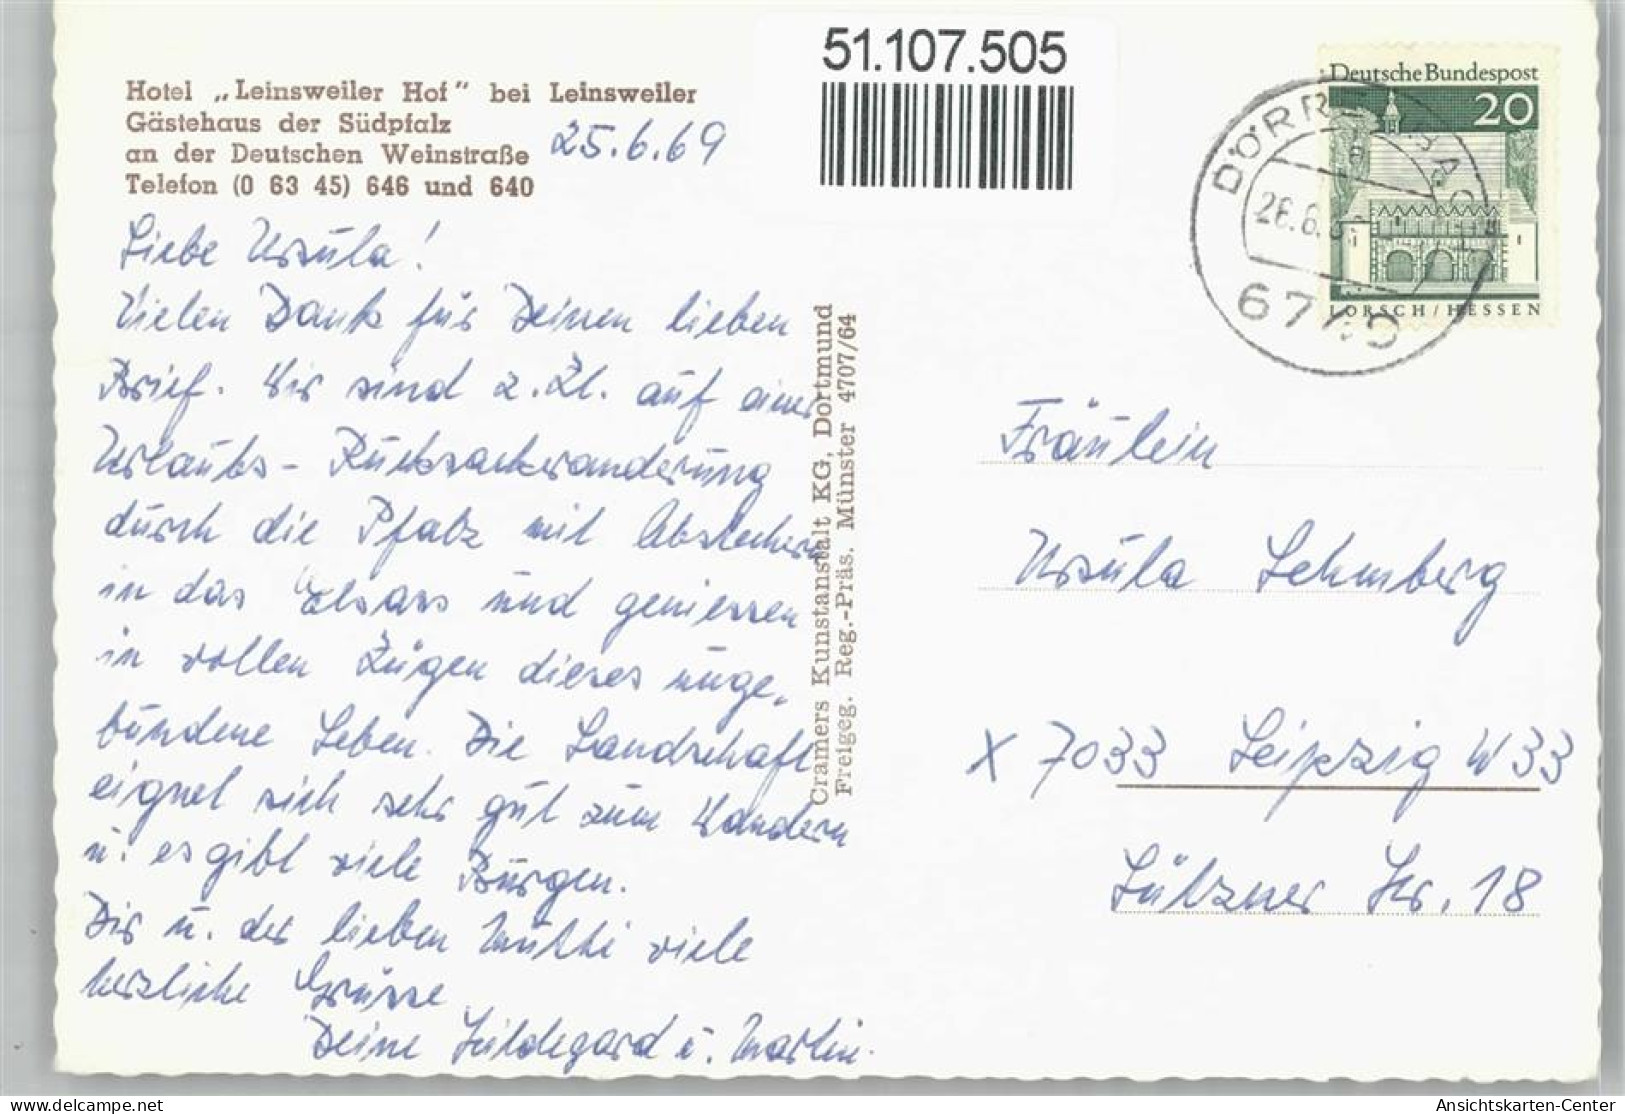 Hotel „Leinsweiler Hof" bei Leinsweiler
Gästehaus der Südpfalz
an der Deutschen Weinstraße
Telefon (0 63 45) 646 und 640
25.6.69
Liebe Ursula!
Vielen Dank für Deinen lieben
Brief. Wir sind z. Zt. auf einer
Urlaubs- Rucksackwanderung
durch die Pfalz mit Abstechern
in das Elsass und geniessen
in vollen Zügen dieses unge-
bundene Leben. Die Landschaft
eignet sich sehr gut zum Wandern
u. es gibt viele Burgen.
Dir u. der lieben Mutti viele
herzliche Grüsse
Deine Hildegard u. Martin.
Cramers Kunstanstalt KG, Dortmund
Freigeg. Reg.-Präs. Münster 4707/64
51.107.505
Deutsche Bundespost
20
LORSCH/HESSEN
26.6.
Fräulein
Ursula Lehmberg
X 7033 Leipzig W 33
Lützner Str. 18
delcampe.net
Ansichtskarten-Center